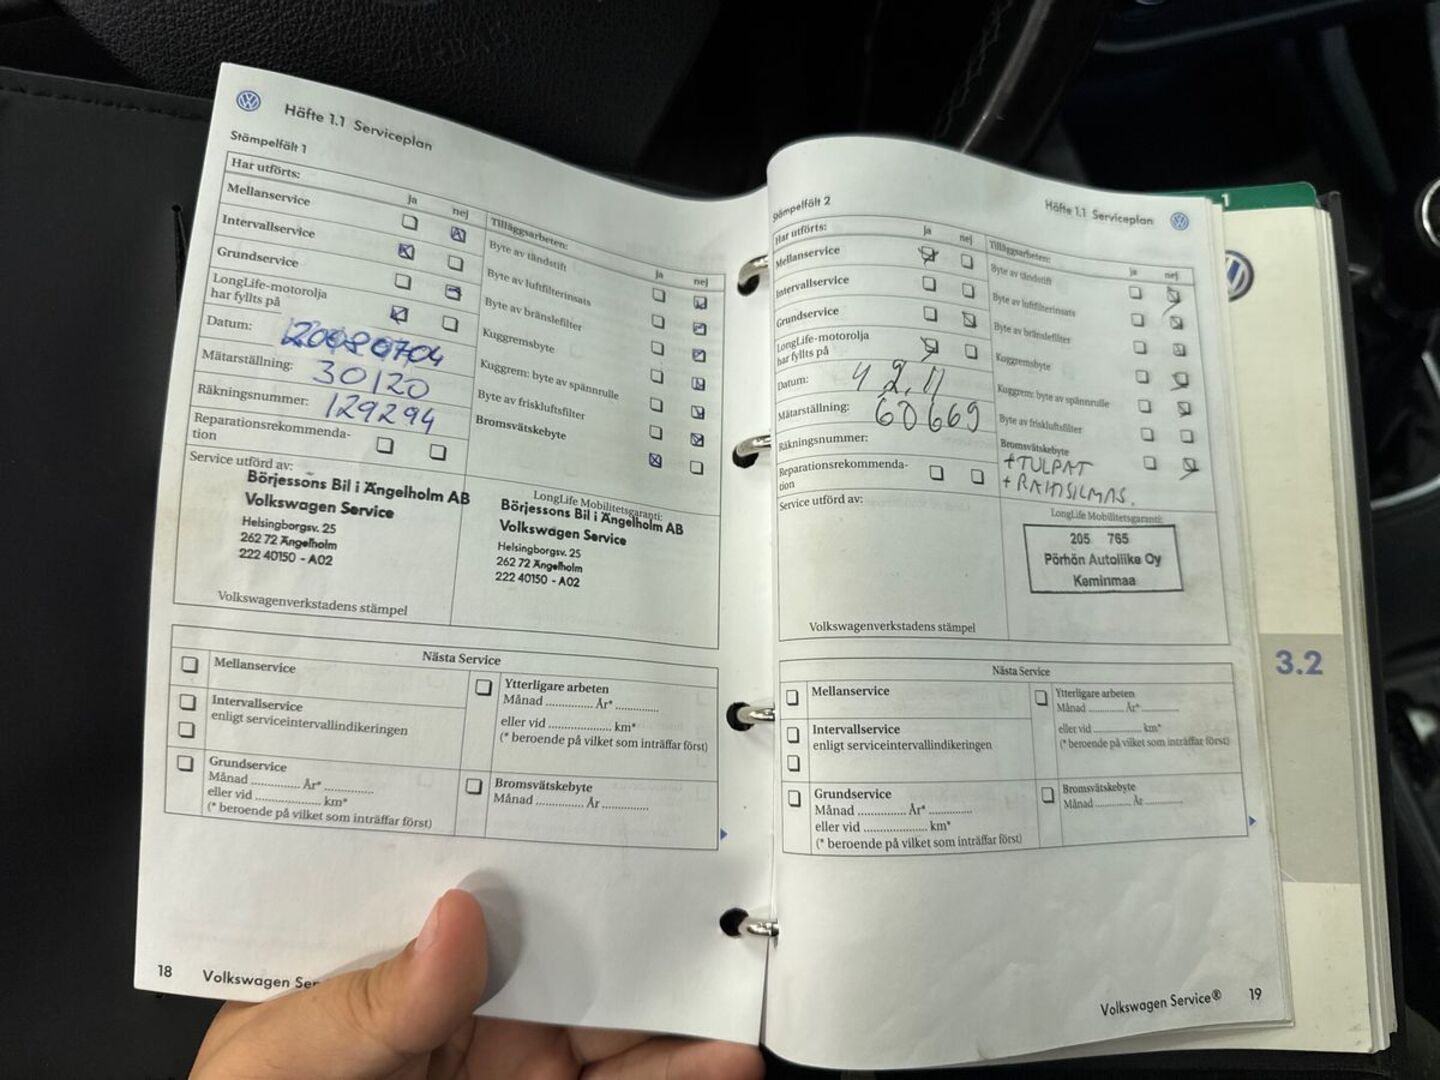 Häfte 1.1 Serviceplan
Stämpelfält 1
Har utförts:
ja nej
Mellanservice
Intervallservice
Grundservice
LongLife-motorolja
har fyllts på
Datum: 20080704
Mätarställning: 30120
Räkningsnummer: 129294
Reparationsrekommenda-
tion
Tilläggsarbeten:
ja nej
Byte av tändstift
Byte av luftfilterinsats
Byte av bränslefilter
Kuggremsbyte
Kuggrem: byte av spännrulle
Byte av friskluftsfilter
Bromsvätskebyte
Service utförd av:
Börjessons Bil i Ängelholm AB
Volkswagen Service
Helsingborgsv. 25
262 72 Ängelholm
222 40150 - A02
Volkswagenverkstadens stämpel
LongLife Mobilitetsgaranti:
Börjessons Bil i Ängelholm AB
Volkswagen Service
Helsingborgsv. 25
262 72 Ängelholm
222 40150 - A02
Nästa Service
Mellanservice
Intervallservice
enligt serviceintervallindikeringen
Grundservice
Månad .............. År* ..............
eller vid .................... km*
(* beroende på vilket som inträffar först)
Ytterligare arbeten
Månad .............. År* ..............
eller vid .................... km*
(* beroende på vilket som inträffar först)
Bromsvätskebyte
Månad .............. År ..............
18 Volkswagen Ser
Stämpelfält 2
Häfte 1.1 Serviceplan
Har utförts:
ja nej
Mellanservice
Intervallservice
Grundservice
LongLife-motorolja
har fyllts på
Datum: 4 2.11
Mätarställning: 60669
Räkningsnummer:
Reparationsrekommenda-
tion
Tilläggsarbeten:
ja nej
Byte av tändstift
Byte av luftfilterinsats
Byte av bränslefilter
Kuggremsbyte
Kuggrem: byte av spännrulle
Byte av friskluftsfilter
Bromsvätskebyte
+TULPAT
+RAITISILMAS.
Service utförd av:
Volkswagenverkstadens stämpel
LongLife Mobilitetsgaranti:
205 765
Pörhön Autoliike Oy
Keminmaa
Nästa Service
Mellanservice
Intervallservice
enligt serviceintervallindikeringen
Grundservice
Månad .............. År* ..............
eller vid .................... km*
(* beroende på vilket som inträffar först)
Ytterligare arbeten
Månad .............. År* ..............
eller vid .................... km*
(* beroende på vilket som inträffar först)
Bromsvätskebyte
Månad .............. År ..............
Volkswagen Service® 19
1
3.2